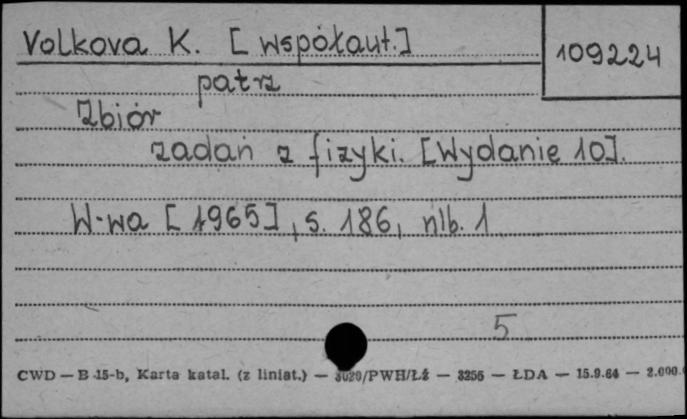 Volkova K. [współaut.]
109224
patrz
Zbiór
zadań z fizyki. [Wydanie 10].
W-wa [1965], s. 186, nlb. 1
5
CWD — B 15-b, Karta katal. (z liniat.) — 3020/PWH/Łź — 3256 — ŁDA — 15.9.64 — 2.000.